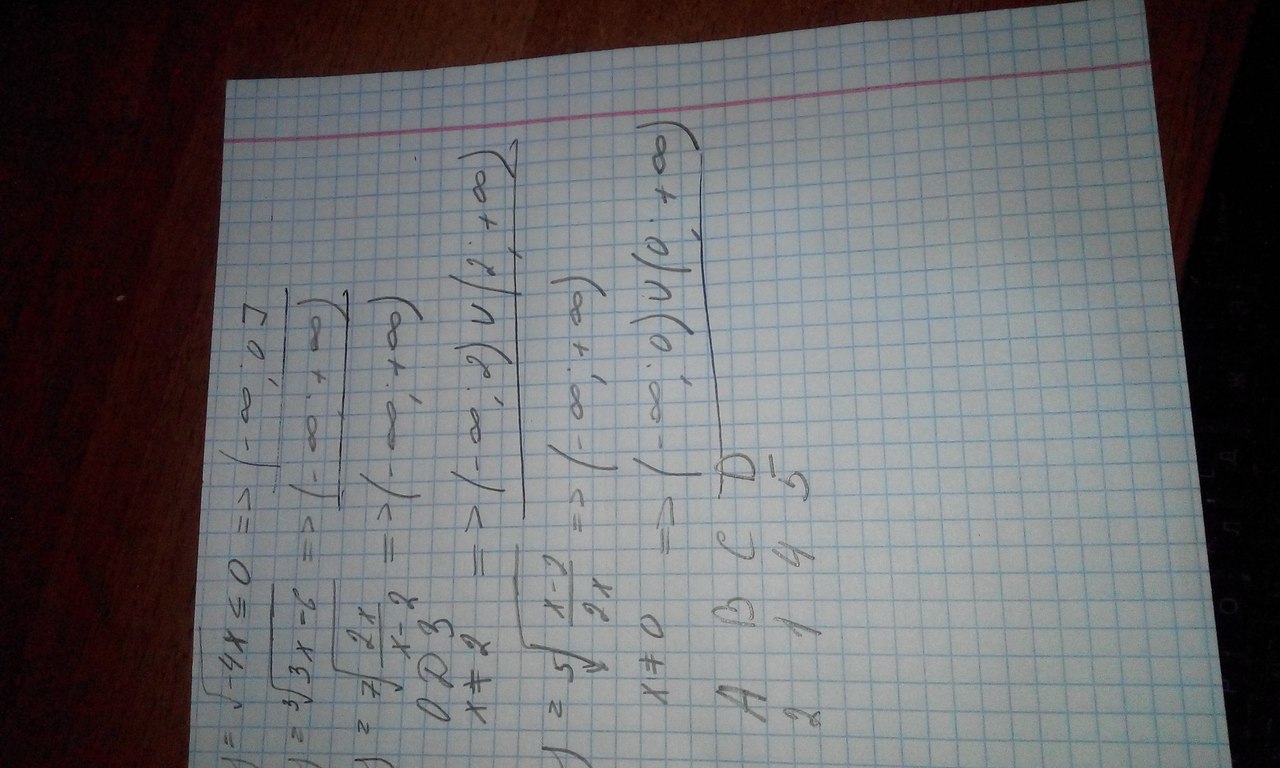 y = √-4x ≤ 0 => (-∞; 0]
y = ³√3x-6 => (-∞; +∞)
y = ⁷√2x/x-2 => (-∞; +∞)
ОДЗ
x ≠ 2 => (-∞; 2) ∪ (2; +∞)
y = ⁵√x-2/2x => (-∞; +∞)
x ≠ 0 => (-∞; 0) ∪ (0; +∞)
A B C D
2 1 4 5